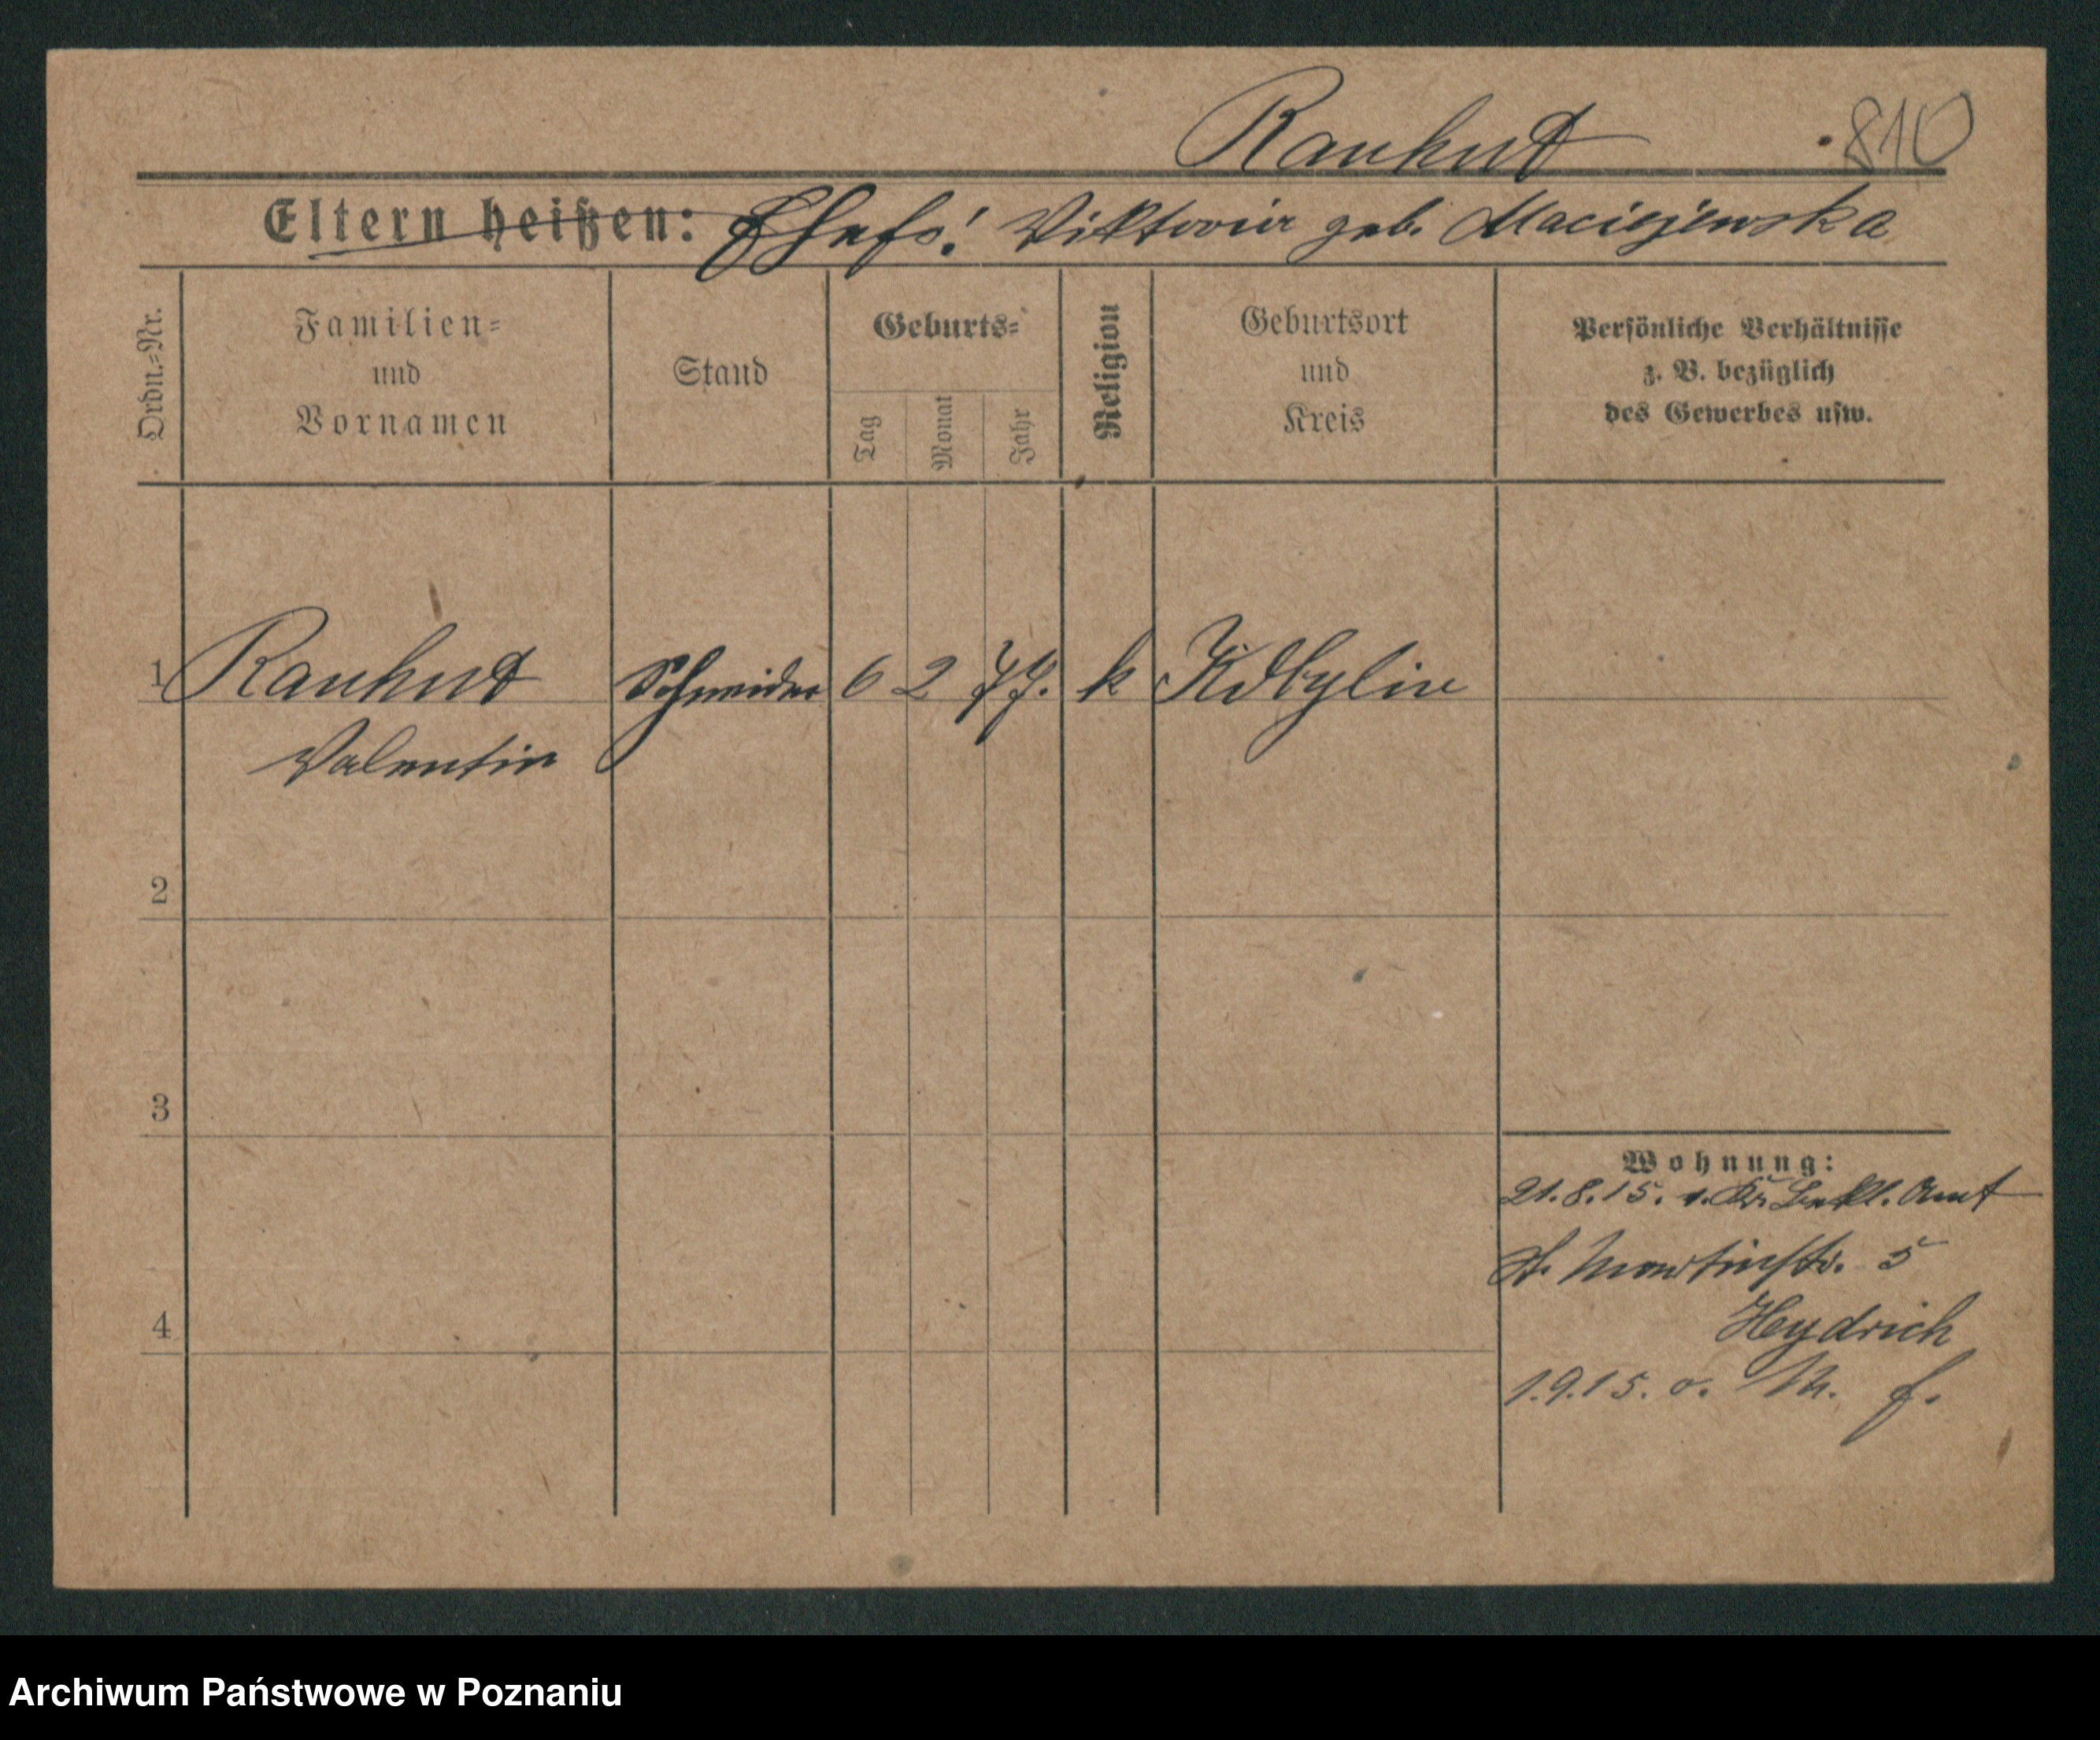 Rauhut
810
Eltern heißen: Ehefr: Viktoria geb. Maciejewska
Ordn.=Nr.
Familien=
und
Vornamen
Stand
Geburts=
Tag
Monat
Jahr
Religion
Geburtsort
und
Kreis
Persönliche Verhältnisse
z. B. bezüglich
des Gewerbes usw.
1 Rauhut Schneider 6 2 77. k Kobylin
Valentin
2
3
4
Wohnung:
21.8.15. Bekl. Amt
St. Martinstr. 5
Heydrich
1.9.15.
Archiwum Państwowe w Poznaniu